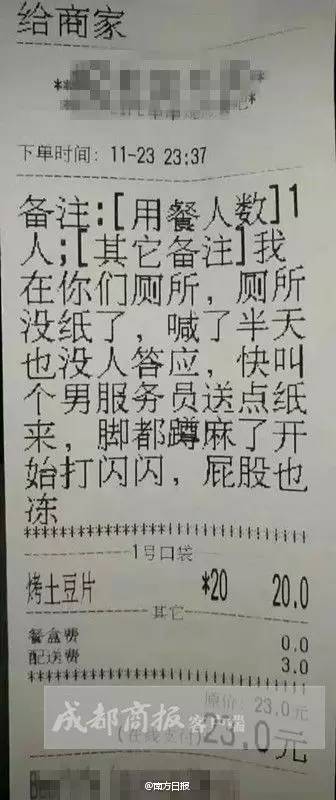 给商家
下单时间: 11-23 23:37
备注:[用餐人数]1
人;[其它备注]我
在你们厕所，厕所
没纸了，喊了半天
也没人答应，快叫
个男服务员送点纸
来，脚都蹲麻了开
始打闪闪，屁股也
冻
1号口袋
烤土豆片 *20 20.0
其它
餐盒费 0.0
配送费 3.0
原价: 23.0元
(在线支付)23.0元
成都商报客户端
@南方日报